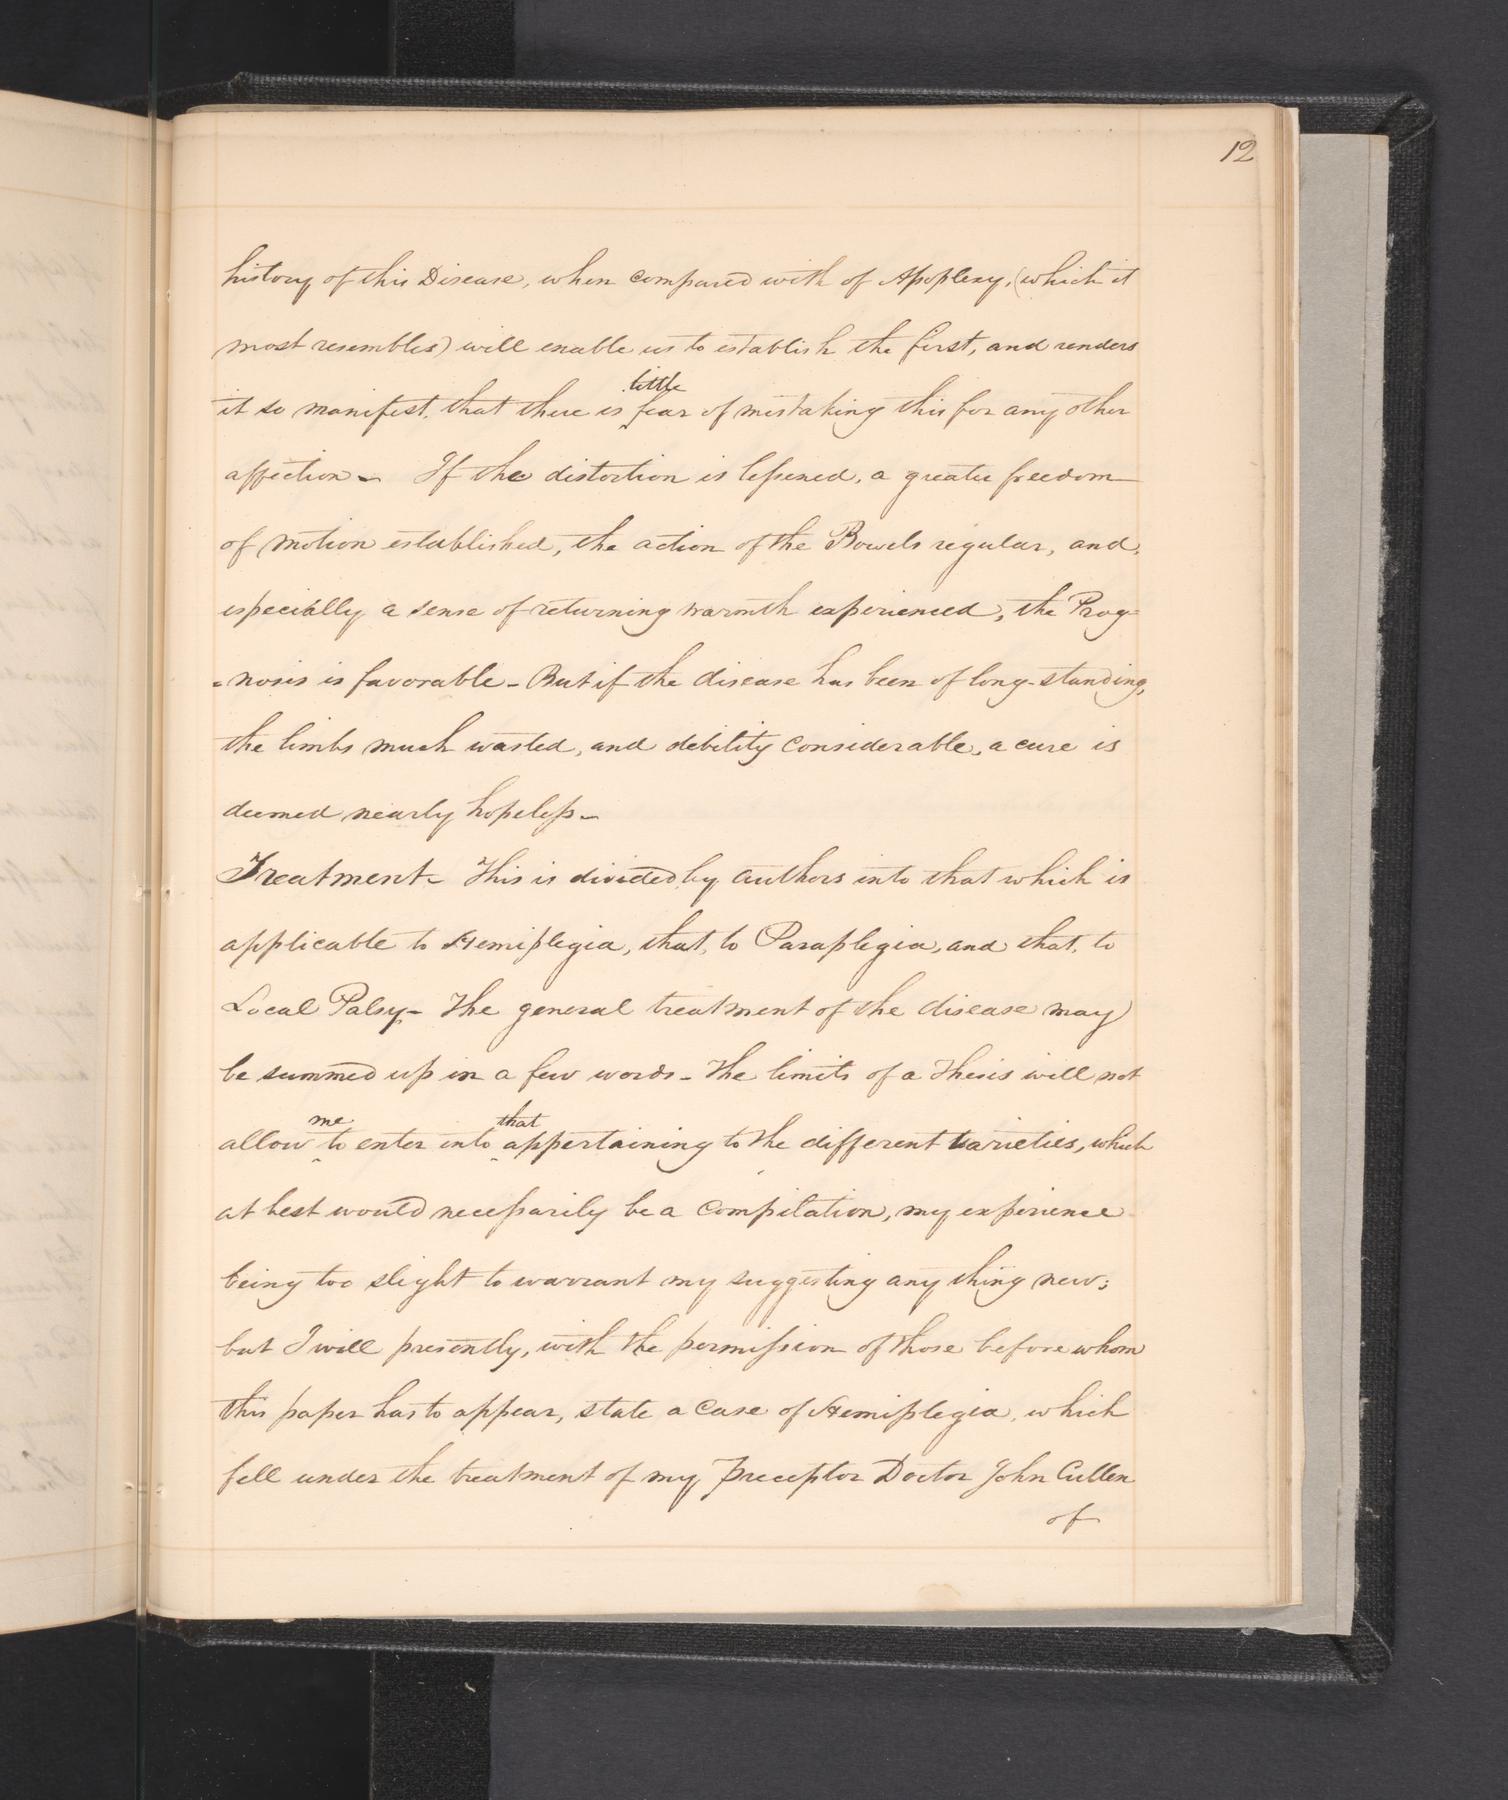 12
history of this Disease, when compared with of Apoplexy, (which it
most resembles) will enable us to establish the first, and renders
it so manifest, that there is little fear of mistaking this for any other
affection - If the distortion is leſsened, a greater freedom
of motion established, the action of the Bowels regular, and,
especially a sense of returning warmth experienced, the Prog=
=nosis is favorable - But if the disease has been of long-standing,
the limbs much wasted, and debility considerable, a cure is
deemed nearly hopeleſs -
Treatment - This is divided by authors into that which is
applicable to Hemiplegia, that, to Paraplegia, and that, to
Local Palsy - The general treatment of the disease may
be summed up in a few words - The limits of a Thesis will not
allow me to enter into that appertaining to the different varieties, which
at best would neceſsarily be a compilation, my experience
being too slight to warrant my suggesting any thing new;
but I will presently, with the permiſsion of those before whom
this paper has to appear, state a Case of Hemiplegia, which
fell under the treatment of my Preceptor Doctor John Cullen
of